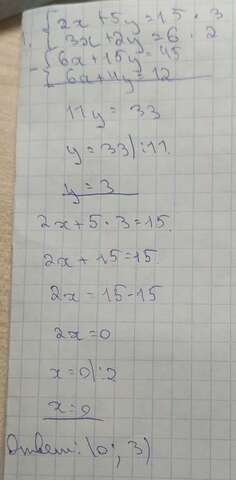 1. { 2x + 5y = 15 · 3
3x + 2y = 6 · 2
- { 6x + 15y = 45
6x + 4y = 12
11y = 33
y = 33 | : 11
y = 3
2x + 5 · 3 = 15.
2x + 15 = 15
2x = 15 - 15
2x = 0
x = 0 | : 2
x = 0
Ответ: (0 ; 3)